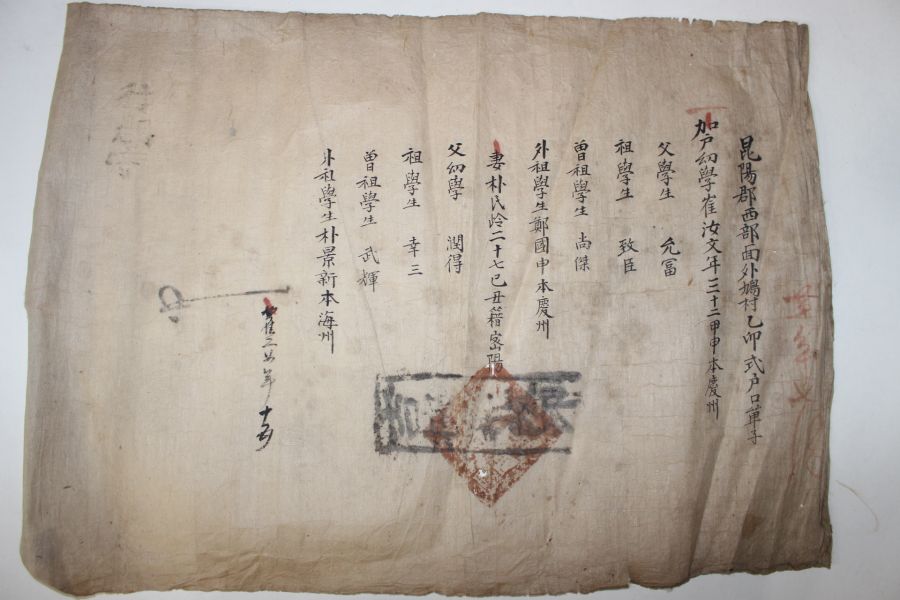 昆陽郡西部面外鳩村乙卯式戶口單子
加戶幼學崔汝文年三十二甲申本慶州
父學生 允冨
祖學生 致臣
曽祖學生 尚傑
外祖學生鄭國申本慶州
妻朴氏齡二十七己丑籍密陽
父幼學 潤得
祖學生 幸三
曽祖學生 武輝
外祖學生朴景新本海州